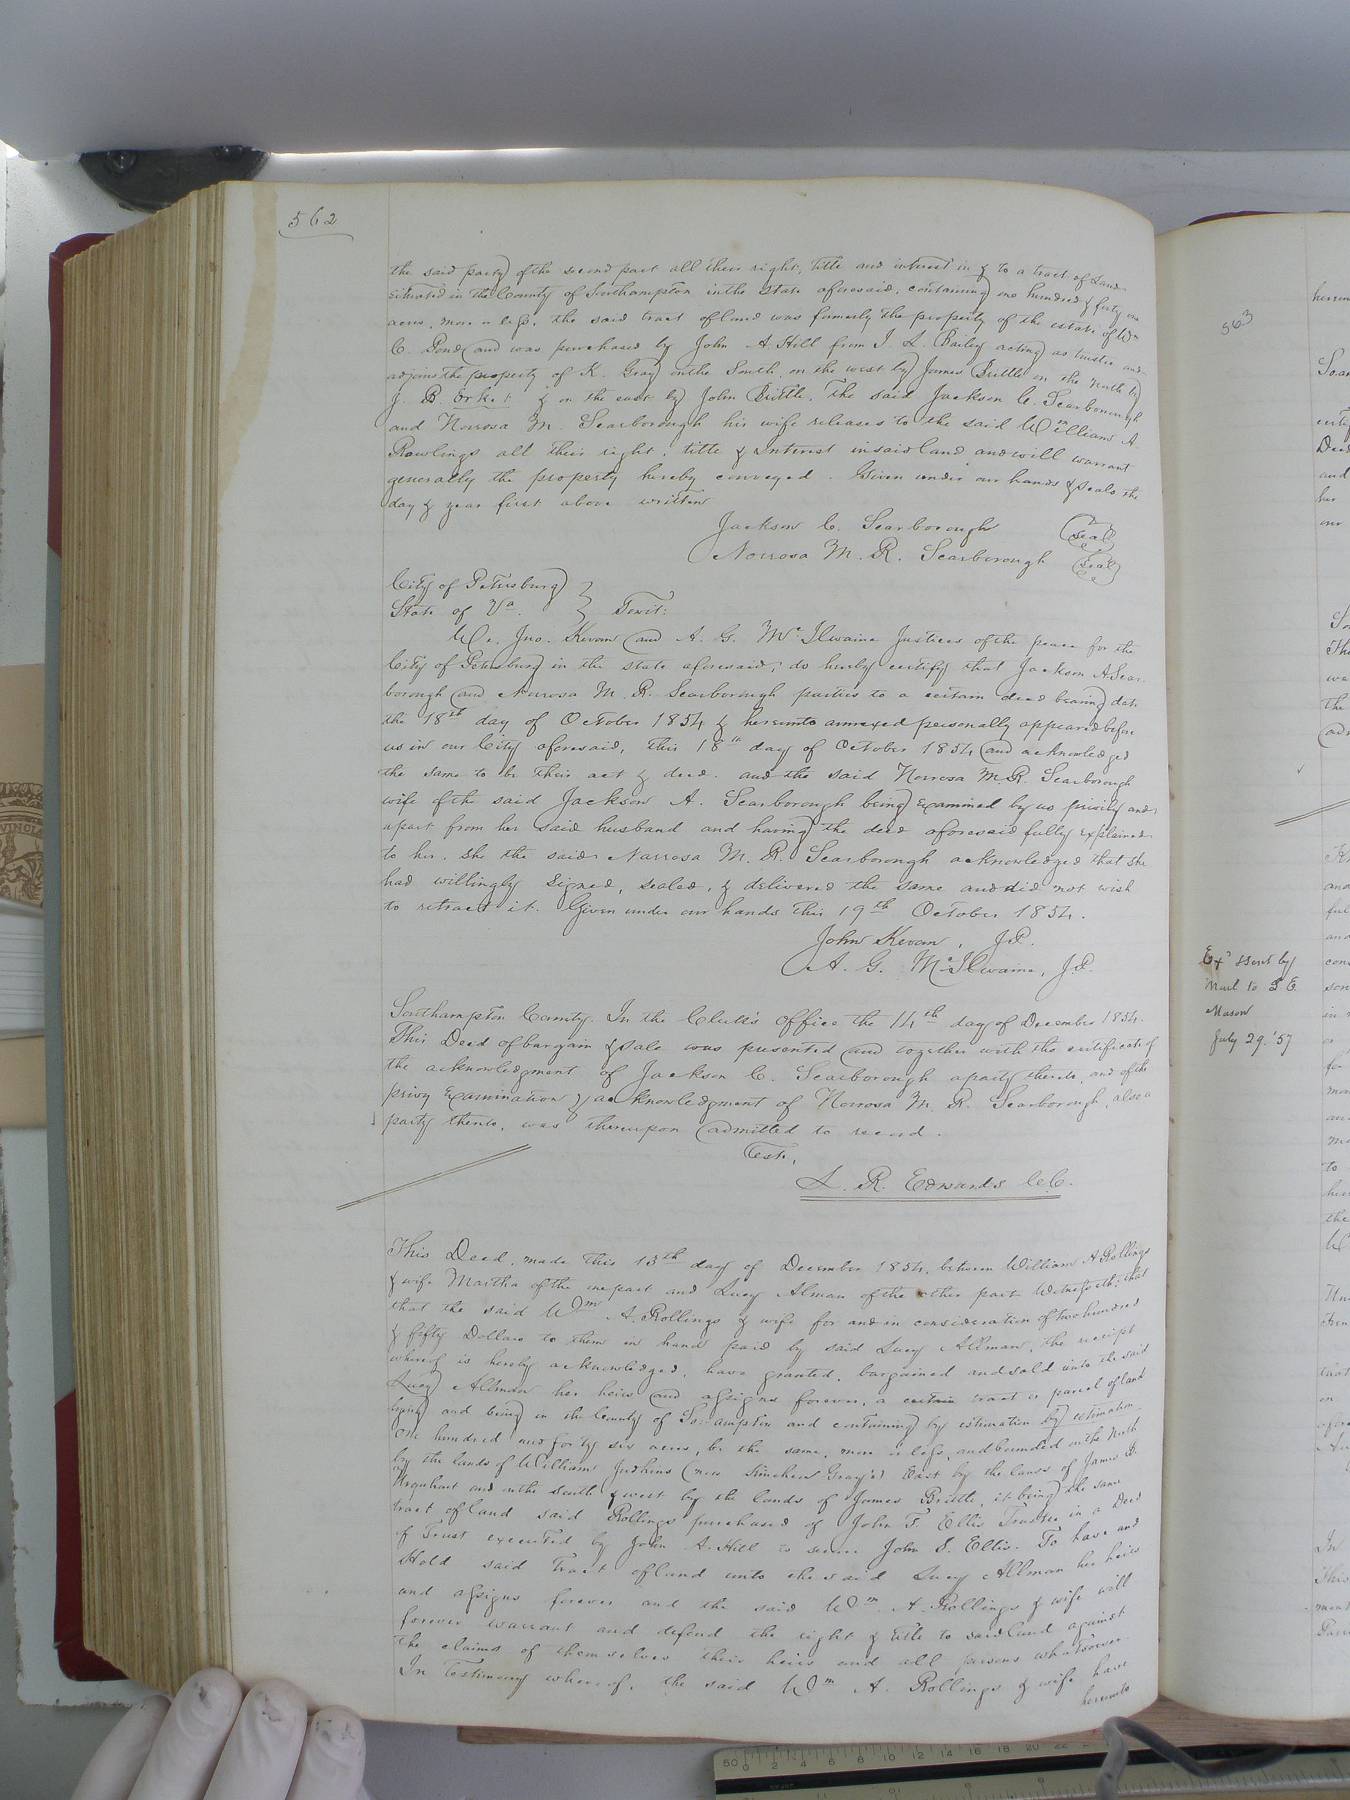 562
the said party of the second part all their right, title and interest in & to a tract of Land
situated in the County of Southampton in the state aforesaid, containing one hundred & forty
acres, more or less, the said tract of land was formerly the property of the estate of Wm
C. Pond and was purchased by John A. Hill from J. L. Bailey acting as trustee and
adjoins the property of K. Gray on the South, on the west by James Brittle on the North by
J. B & on the east by John Brittle. The said Jackson C. Scarborough
and Norrosa M. Scarborough his wife releases to the said William A
Rawlings all their right, title & Interest in said land and will warrant
generally the property hereby conveyed. Given under our hands & seals the
day & year first above written
Jackson C. Scarborough (seal)
Norrosa M. R. Scarborough (seal)
City of Petersburg
State of Va. } Towit:
We, Jno. Kevan and A. G. McIlwaine Justices of the peace for the
City of Petersburg in the state aforesaid, do hereby certify that Jackson A. Scar-
borough and Norrosa M. R. Scarborough parties to a certain deed bearing date
the 18th day of October 1854 & hereunto annexed personally appeared before
us in our City aforesaid, this 18th day of October 1854 and acknowledged
the same to be their act & deed. and the said Norrosa M. R. Scarborough
wife of the said Jackson A. Scarborough being examined by us privily and
apart from her said husband and having the deed aforesaid fully explained
to her, she the said Narrosa M. R. Scarborough acknowledged that she
had willingly signed, sealed, & delivered the same and did not wish
to retract it. Given under our hands this 19th October 1854.
John Kevan, J.P.
A. G. McIlwaine, J.P.
Southampton County. In the Clerk's office the 14th day of December 1854.
This Deed of bargain & sale was presented and together with the certificate of
the acknowledgment of Jackson C. Scarborough a party thereto, and of the
privy Examination & acknowledgment of Norrosa M. R. Scarborough, also a
party thereto, was thereupon admitted to record.
Teste,
L. R. Edwards C.C.
This Deed, made this 13th day of December 1854, between William A Rollings
& wife Martha of the one part and Lucy Alman of the other part Witnesseth: that
that the said Wm A. Rollings & wife for and in consideration of two hundred
& fifty Dollars to them in hand paid by said Lucy Allman, the receipt
whereof is hereby acknowledged, have granted, bargained and sold unto the said
Lucy Allman her heirs and assigns forever, a certain tract or parcel of land
lying and being in the County of So:ampton and containing by estimation by estimation
one hundred and forty six acres, be the same, more or less, and bounded on the North
by the lands of William Judkins (now Simcheon Gray's) East by the lands of James B.
Urquhart and on the south & west by the lands of James Brittle, it being the same
tract of land said Rollings purchased of John F. Ellis Trustee in a Deed
of Trust executed by John A. Hill to secure John S. Ellis. To have and
Hold said Tract of land unto the said Lucy Allman her heirs
and assigns forever and the said Wm. A. Rollings & wife will
forever warrant and defend the right & title to said land against
the claims of themselves their heirs and all persons whatsoever
In Testimony whereof, the said Wm A. Rollings & wife have
hereunto
563
Exd sent by
Mail to
Mason
July 29. '57